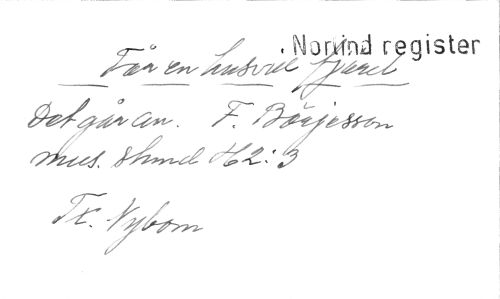 Norlind register
Får en husvill fjäril
Det går an. F. Börjesson
mus. Skind H2:3
Tx. Nybom